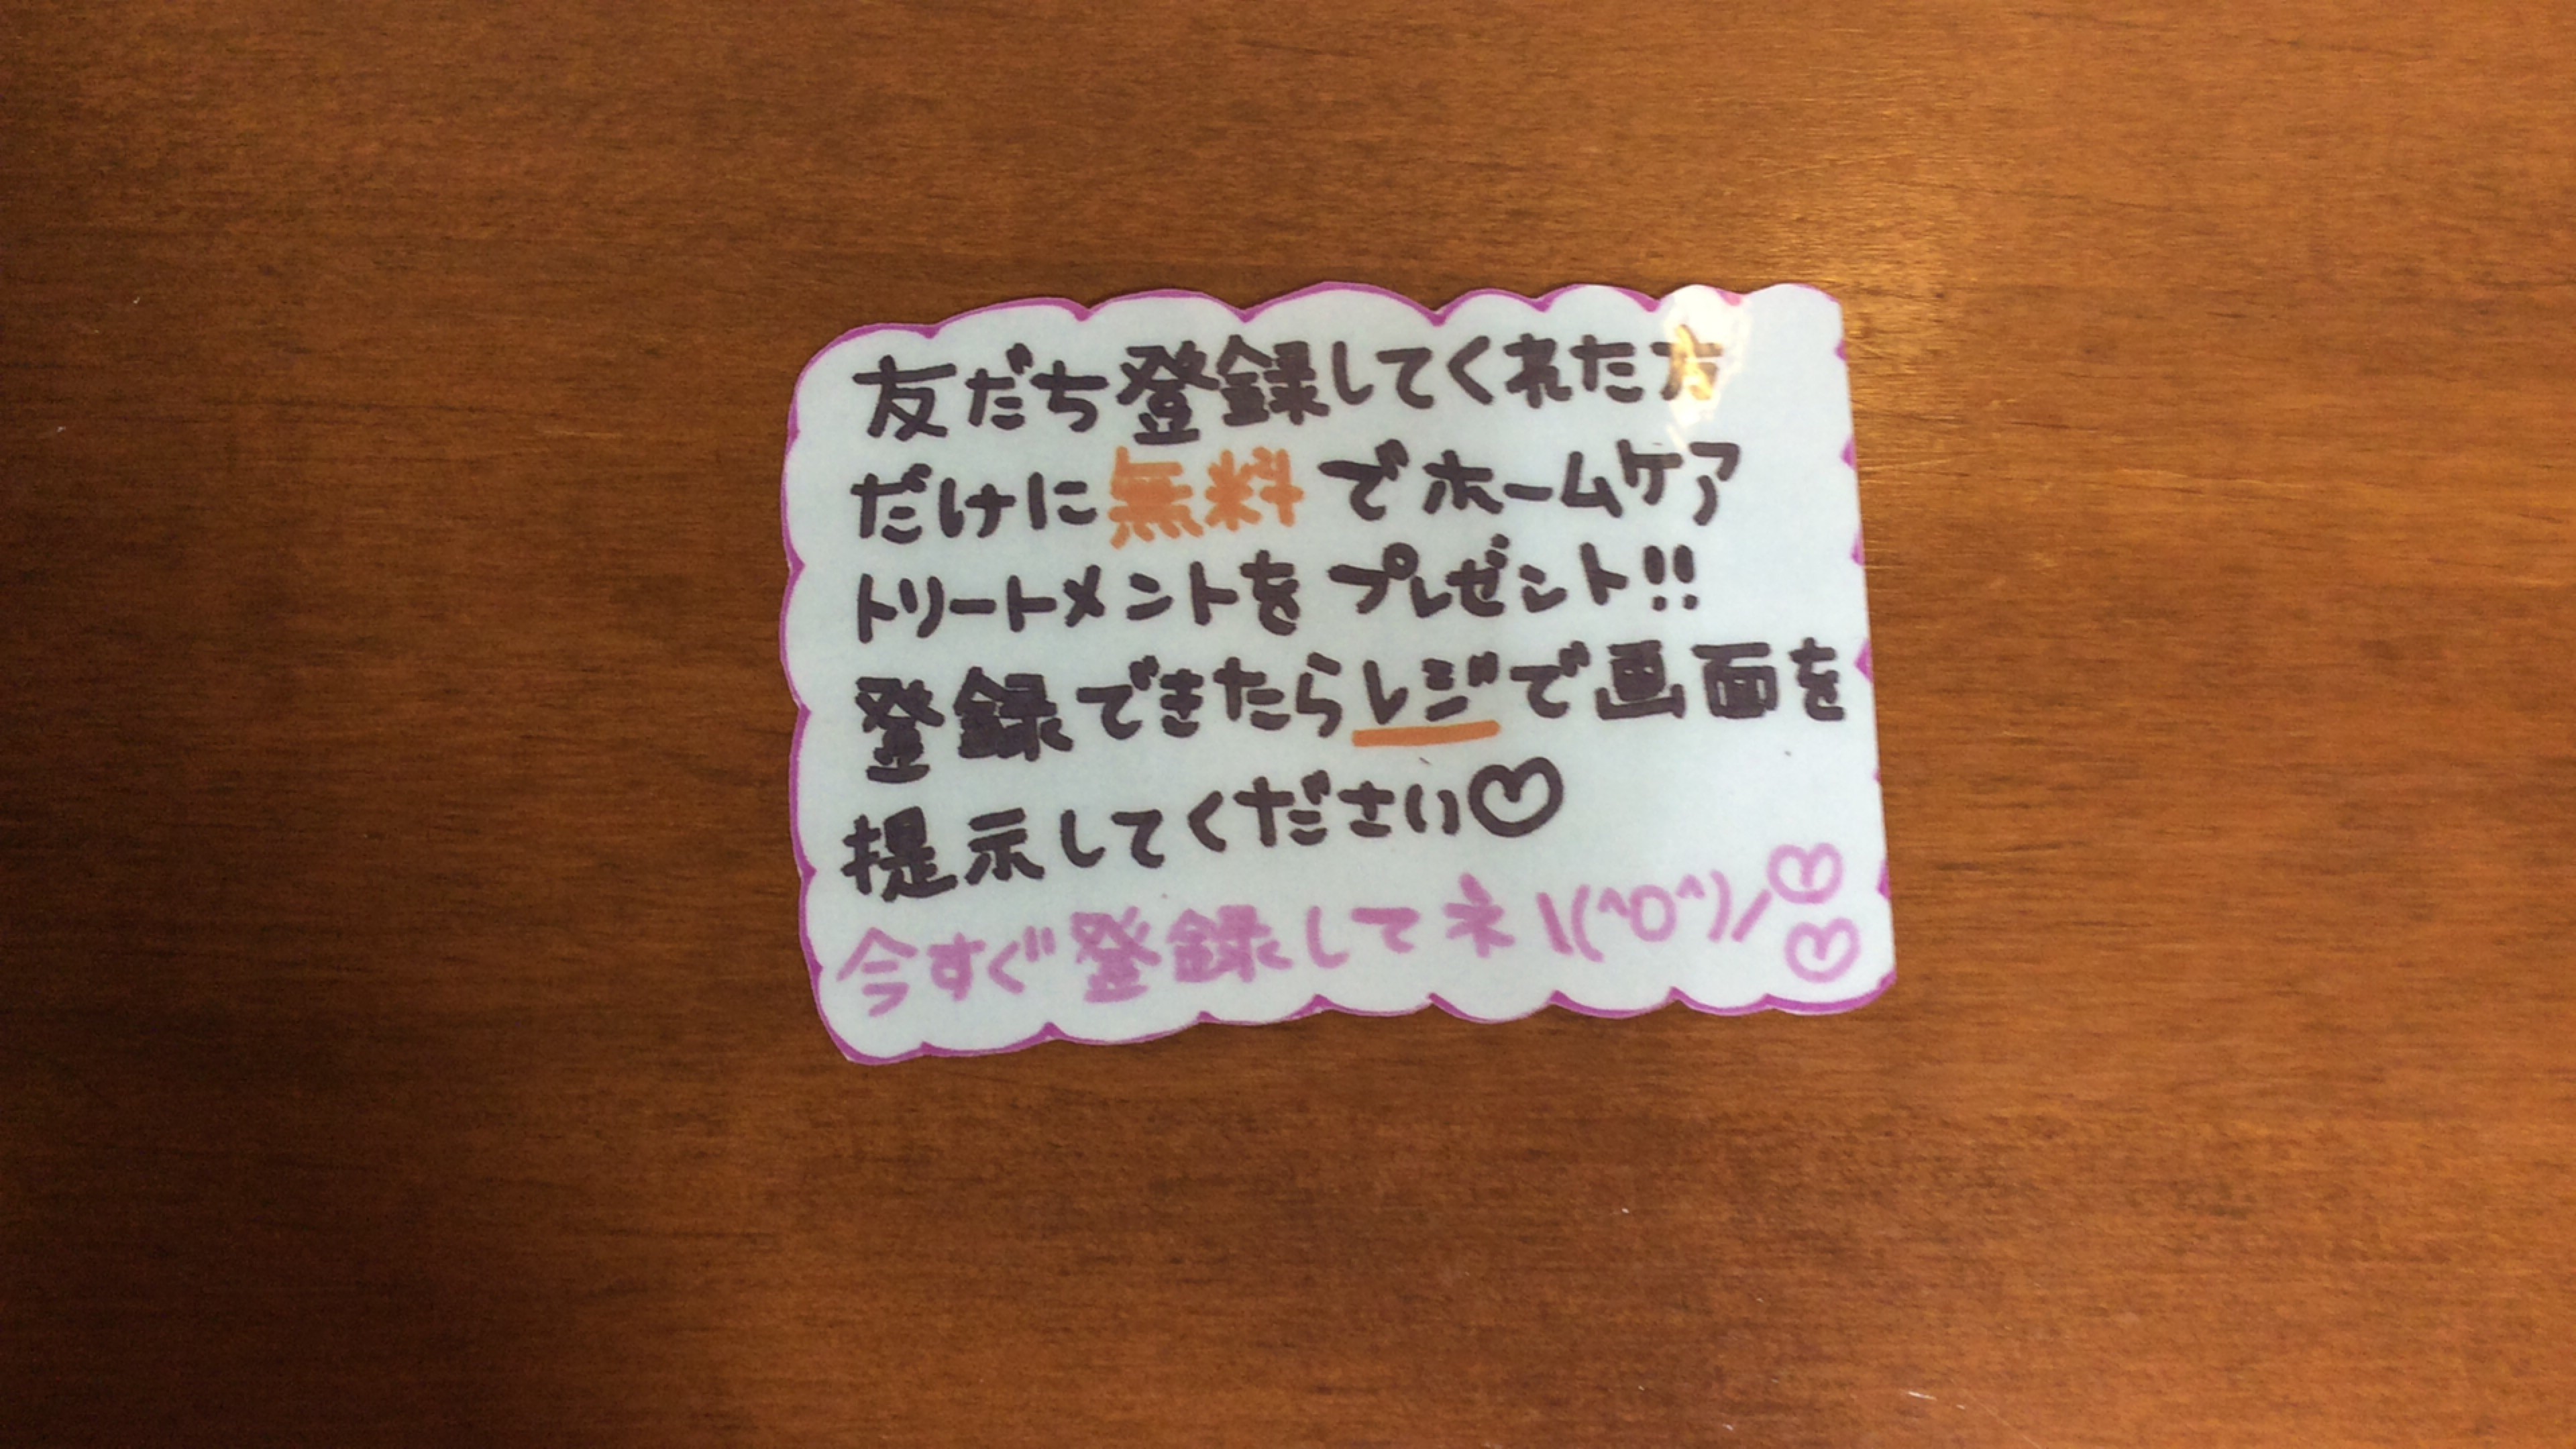 友だち登録してくれた方
だけに無料でホームケア
トリートメントをプレゼント!!
登録できたらレジで画面を
提示してください♡
今すぐ登録してネ\(^O^)/♡♡